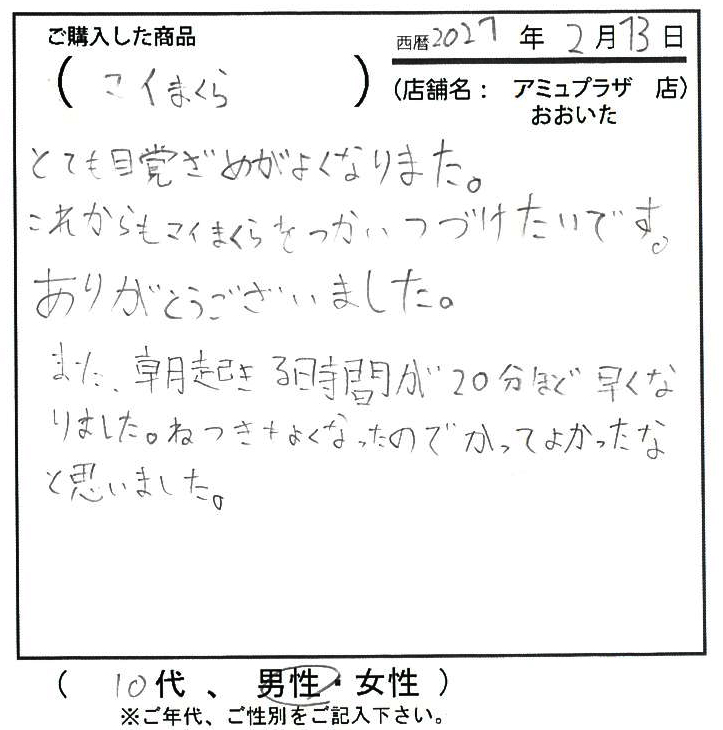 ご購入した商品
西暦2021年2月13日
(マイまくら)
(店舗名： アミュプラザ 店)
おおいた
とても目覚ざめがよくなりました。
これからもマイまくらをつかいつづけたいです。
ありがとうございました。
また、朝起きる時間が20分ほど早くな
りました。ねつきもよくなったのでかってよかったな
と思いました。
( 10代 、 男性・女性 )
※ご年代、ご性別をご記入下さい。